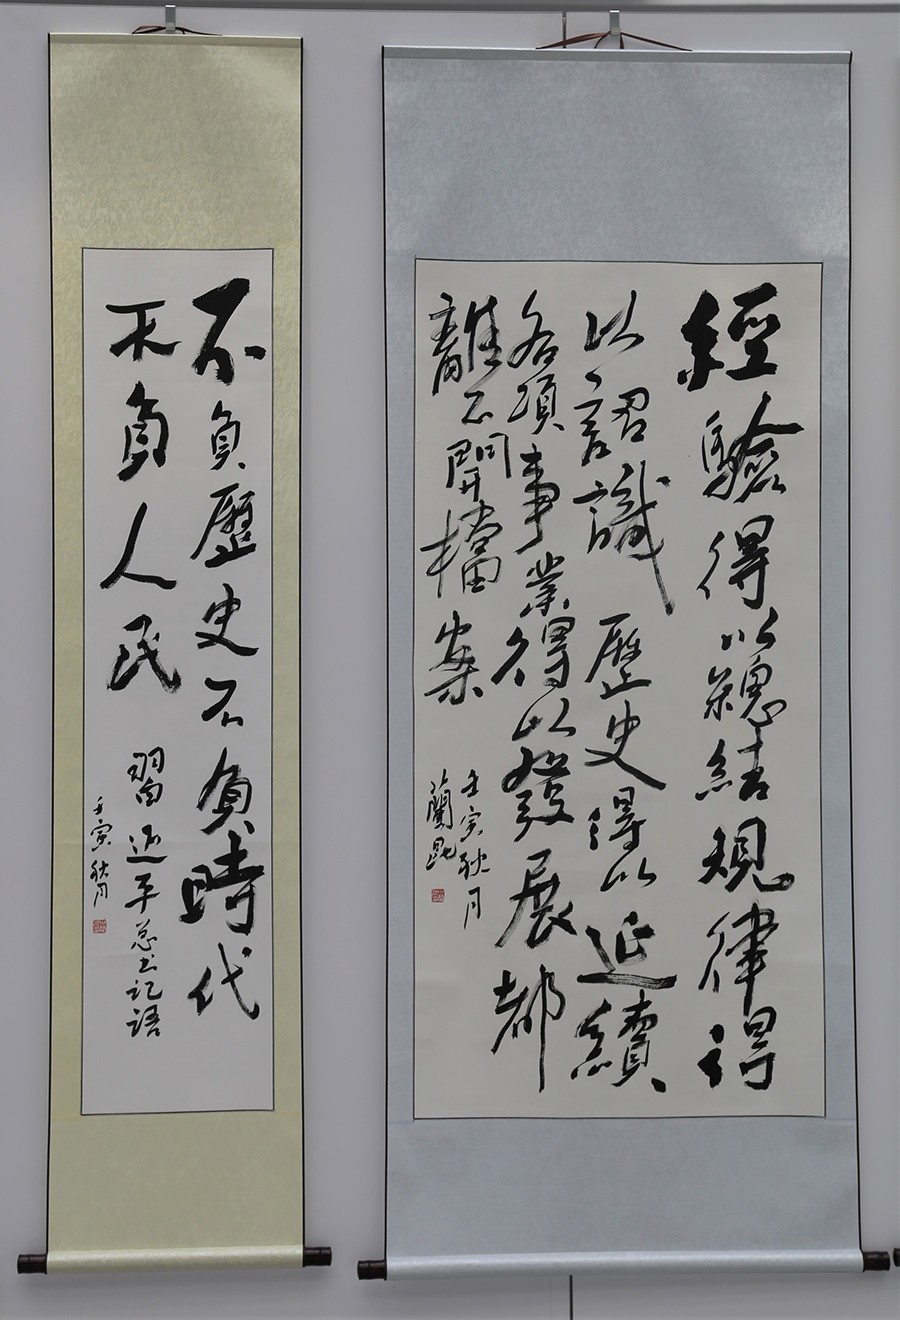 經驗得以總結規律得
以認識歷史得以延續
各項事業得以發展都
離不開檔案
壬寅秋月
蘭昆
不負歷史不負時代
不負人民
習近平总书记语
壬寅秋月